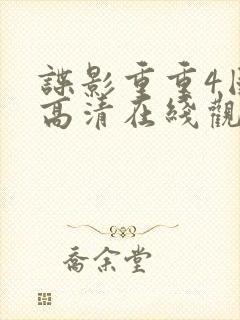 諜影重重4
高清在綫觀
喬余堂